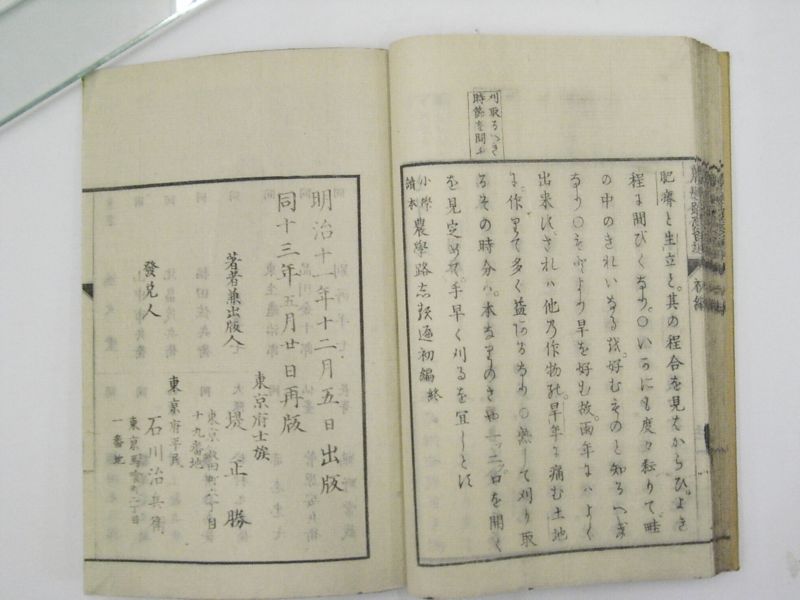 刈取るべき
時節を問ふ
肥瘠と生立と其の程合を見はからひ。よき
程に間びくなり。〇いかにも度々耘りて畦
の中のきれいなるを。好むものと知るべき
なり〇もとより旱を好む故。雨年にハよく
出来ず。されハ他乃作物の。旱年に痛む土地
に。作りて多く益あるなり〇熟して刈り取
るその時分ハ。本なりのさや一二口を開く
を見定めて。手早く刈るを宜しとす
小學
讀本
農學
初編終
初編
明治十一年十二月五日出版
同十三年五月廿日再版
著者兼出版人
東京府士族
堤正勝
十九番地
發兌人
東京府平民
石川治兵衛
一番地